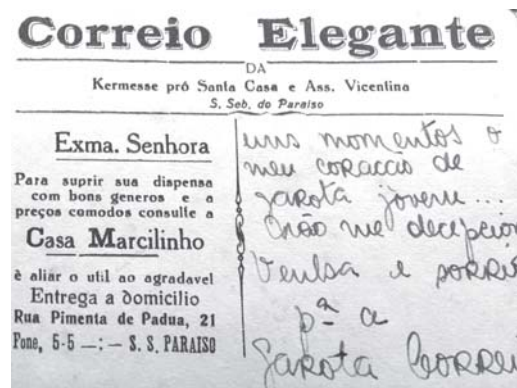 Correio Elegante
DA
Kermesse pró Santa Casa e Ass. Vicentina
S. Seb. do Paraiso
Exma. Senhora
Para suprir sua dispensa
com bons generos e a
preços comodos consulte a
Casa Marcilinho
è aliar o util ao agradavel
Entrega a domicilio
Rua Pimenta de Padua, 21
Fone, 5-5 —:— S. S. PARAISO
uns momentos o
meu coração de
garota jovem...
não me decepcion
e sorri
pª a
Garota Correi